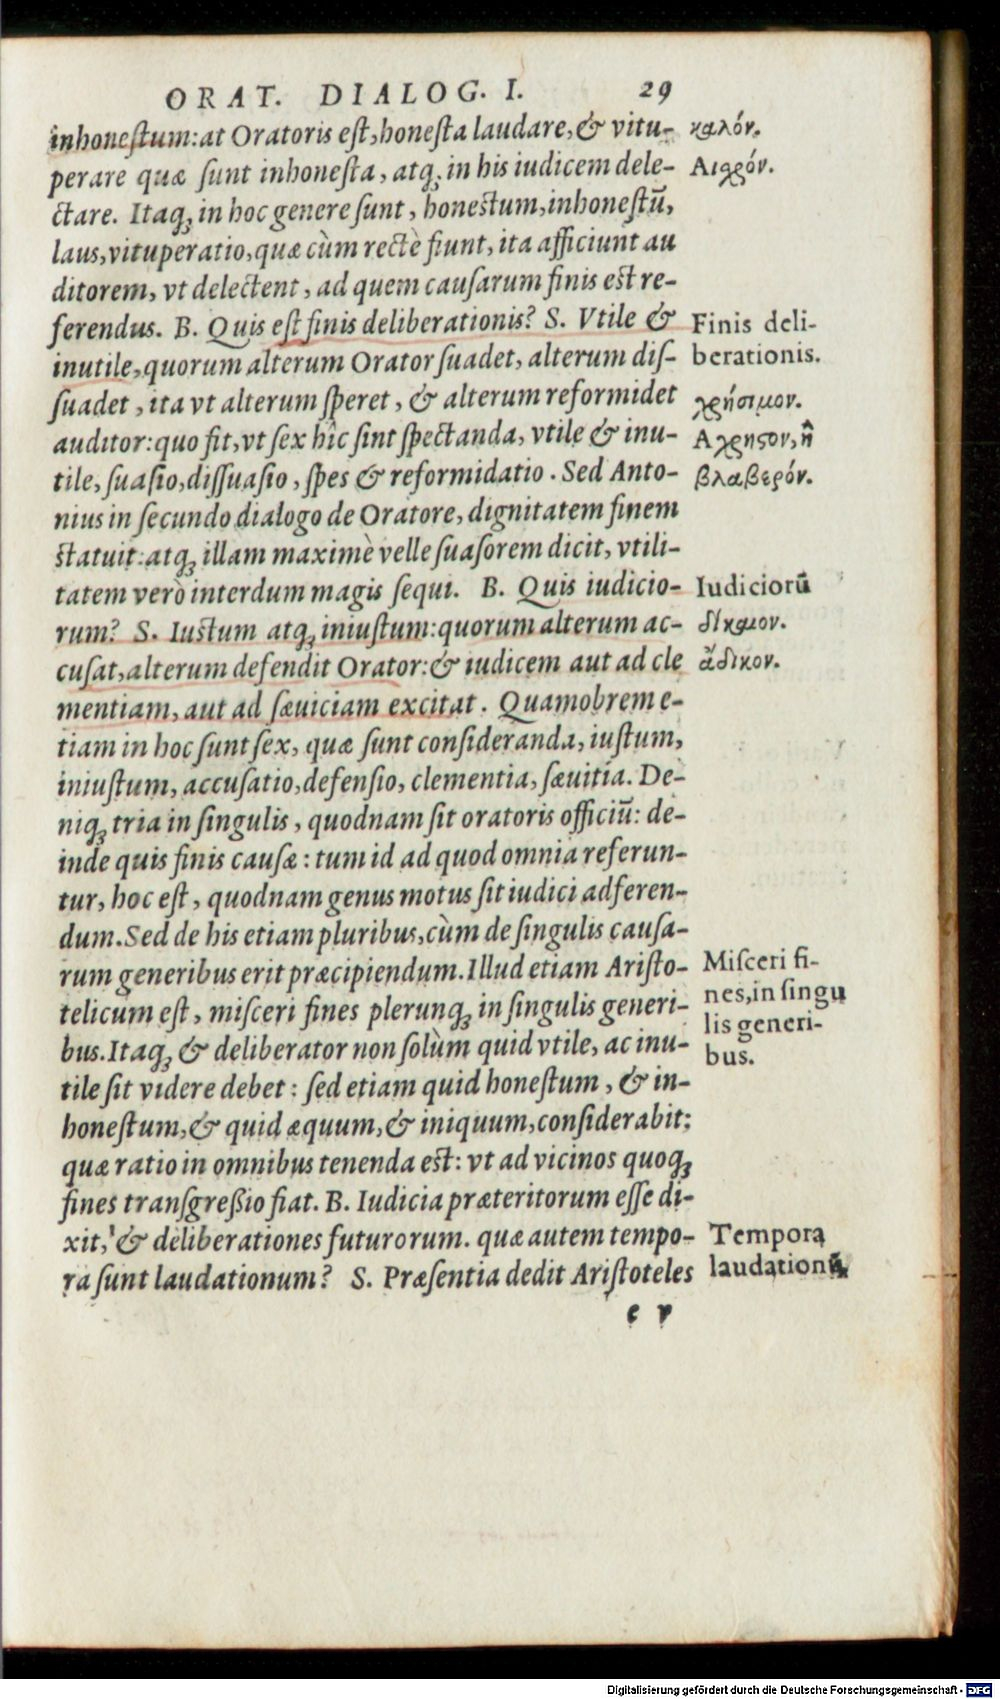 ORAT. DIALOG. I. 29
inhoneſtum: at Oratoris eſt, honeſta laudare, & vitu-
perare quæ ſunt inhoneſta, atq; in his iudicem dele-
ctare. Itaq; in hoc genere ſunt, honeſtum, inhoneſtū,
laus, vituperatio, quæ cùm rectè fiunt, ita afficiunt au
ditorem, vt delectent, ad quem cauſarum finis eſt re-
ferendus. B. Quis eſt finis deliberationis? S. Vtile &
inutile, quorum alterum Orator ſuadet, alterum diſ-
ſuadet, ita vt alterum ſperet, & alterum reformidet
auditor: quo fit, vt ſex hîc ſint ſpectanda, vtile & inu-
tile, ſuaſio, diſſuaſio, ſpes & reformidatio. Sed Anto-
nius in ſecundo dialogo de Oratore, dignitatem finem
ſtatuit: atq; illam maximè velle ſuaſorem dicit, vtili-
tatem verò interdum magis ſequi. B. Quis iudicio-
rum? S. Iuſtum atq; iniuſtum: quorum alterum ac-
cuſat, alterum defendit Orator: & iudicem aut ad cle
mentiam, aut ad ſæuiciam excitat. Quamobrem e-
tiam in hoc ſunt ſex, quæ ſunt conſideranda, iuſtum,
iniuſtum, accuſatio, defenſio, clementia, ſæuitia. De-
niq; tria in ſingulis, quodnam ſit oratoris officiū: de-
inde quis finis cauſæ: tum id ad quod omnia referun-
tur, hoc eſt, quodnam genus motus ſit iudici adferen-
dum. Sed de his etiam pluribus, cùm de ſingulis cauſa-
rum generibus erit præcipiendum. Illud etiam Ariſto-
telicum eſt, miſceri fines plerunq; in ſingulis generi-
bus. Itaq; & deliberator non ſolùm quid vtile, ac inu-
tile ſit videre debet: ſed etiam quid honeſtum, & in-
honeſtum, & quid æquum, & iniquum, conſiderabit:
quæ ratio in omnibus tenenda eſt: vt ad vicinos quoq;
fines tranſgreßio fiat. B. Iudicia præteritorum eſſe di-
xit, & deliberationes futurorum. quæ autem tempo-
ra ſunt laudationum? S. Præſentia dedit Ariſtoteles
e v
καλόν.
Αιχρόν.
Finis deli-
berationis.
χρήσιμον.
Αχρηϛον, ἢ
βλαβερόν.
Iudiciorū
δίκαιον.
ἄδικον.
Miſceri fi-
nes, in ſingu
lis generi-
bus.
Tempora
laudationū.
Digitalisierung gefördert durch die Deutsche Forschungsgemeinschaft - DFG